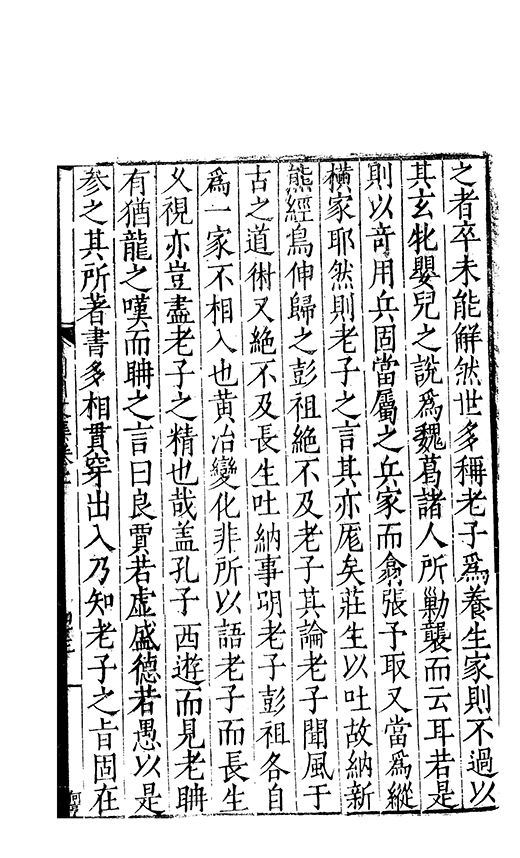 之者卒未能解然世多稱老子爲養生家則不過以
其玄牝嬰兒之說爲魏葛諸人所勦襲而云耳若是
則以奇用兵固當屬之兵家而翕張予取又當爲縱
橫家耶然則老子之言其亦厖矣莊生以吐故納新
熊經鳥伸歸之彭祖絕不及老子其論老子聞風于
古之道術又絕不及長生吐納事明老子彭祖各自
爲一家不相入也黄冶變化非所以語老子而長生
乆視亦豈盡老子之精也哉盖孔子西遊而見老聃
有猶龍之嘆而聃之言曰良賈若虛盛德若愚以是
参之其所著書多相貫穿出入乃知老子之旨固在